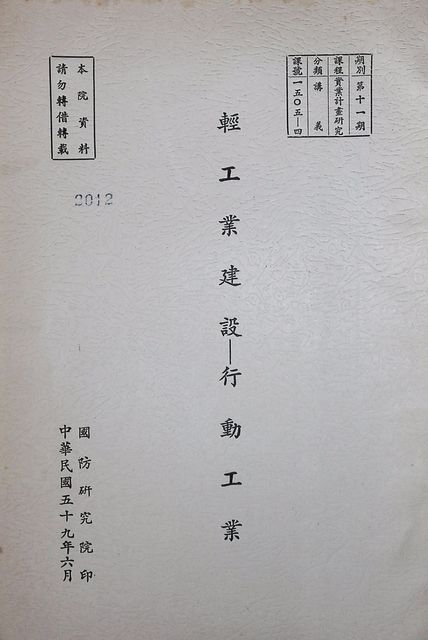 期別 第十一期
課程 實業計畫研究
分類 講義
課號 一五〇五—四
輕工業建設—行動工業
本院資料
請勿轉借轉載
2012
國防研究院印
中華民國五十九年六月